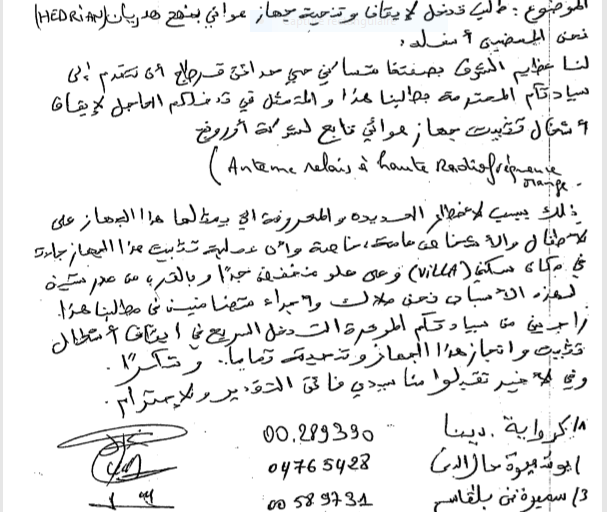 الموضوع: طلب تدخل لإيقاف وتنحية جهاز هوائي بنهج هدريان (HEDRIAN)
نحن الممضين أسفله،
لنا عظيم الشرف بصفتنا متساكني حي حدائق قرطاج أن نتقدم إلى
سيادتكم المحترمة بطلبنا هذا والمتمثل في تدخلكم العاجل لإيقاف
أشغال تثبيت جهاز هوائي تابع لشركة أورونج
(Antenne relais à haute Radiofréquence
orange.
ذلك بسبب الأخطار العديدة والمعروفة التي يمثلها هذا الجهاز على
الأطفال والأشخاص عامة، خاصة وأن عملية تثبيت هذا الجهاز جاءت
في مكان سكني (VILLA) وعلى علو منخفض جدا وبالقرب من مدرستين
لهذه الأسباب نحن ملاك وأجراء متضامنين في مطلبنا هذا.
راجين من سيادتكم الموقرة التدخل السريع في إيقاف أشغال
تثبيت وإنجاز هذا الجهاز وتنحيته تماما. وشكرا.
وفي الأخير تقبلوا منا سيدي فائق التقدير والإحترام.
1/ كرواية دينا 00.289390
04765428
3/ سميرة بن بلقاسم 00589731